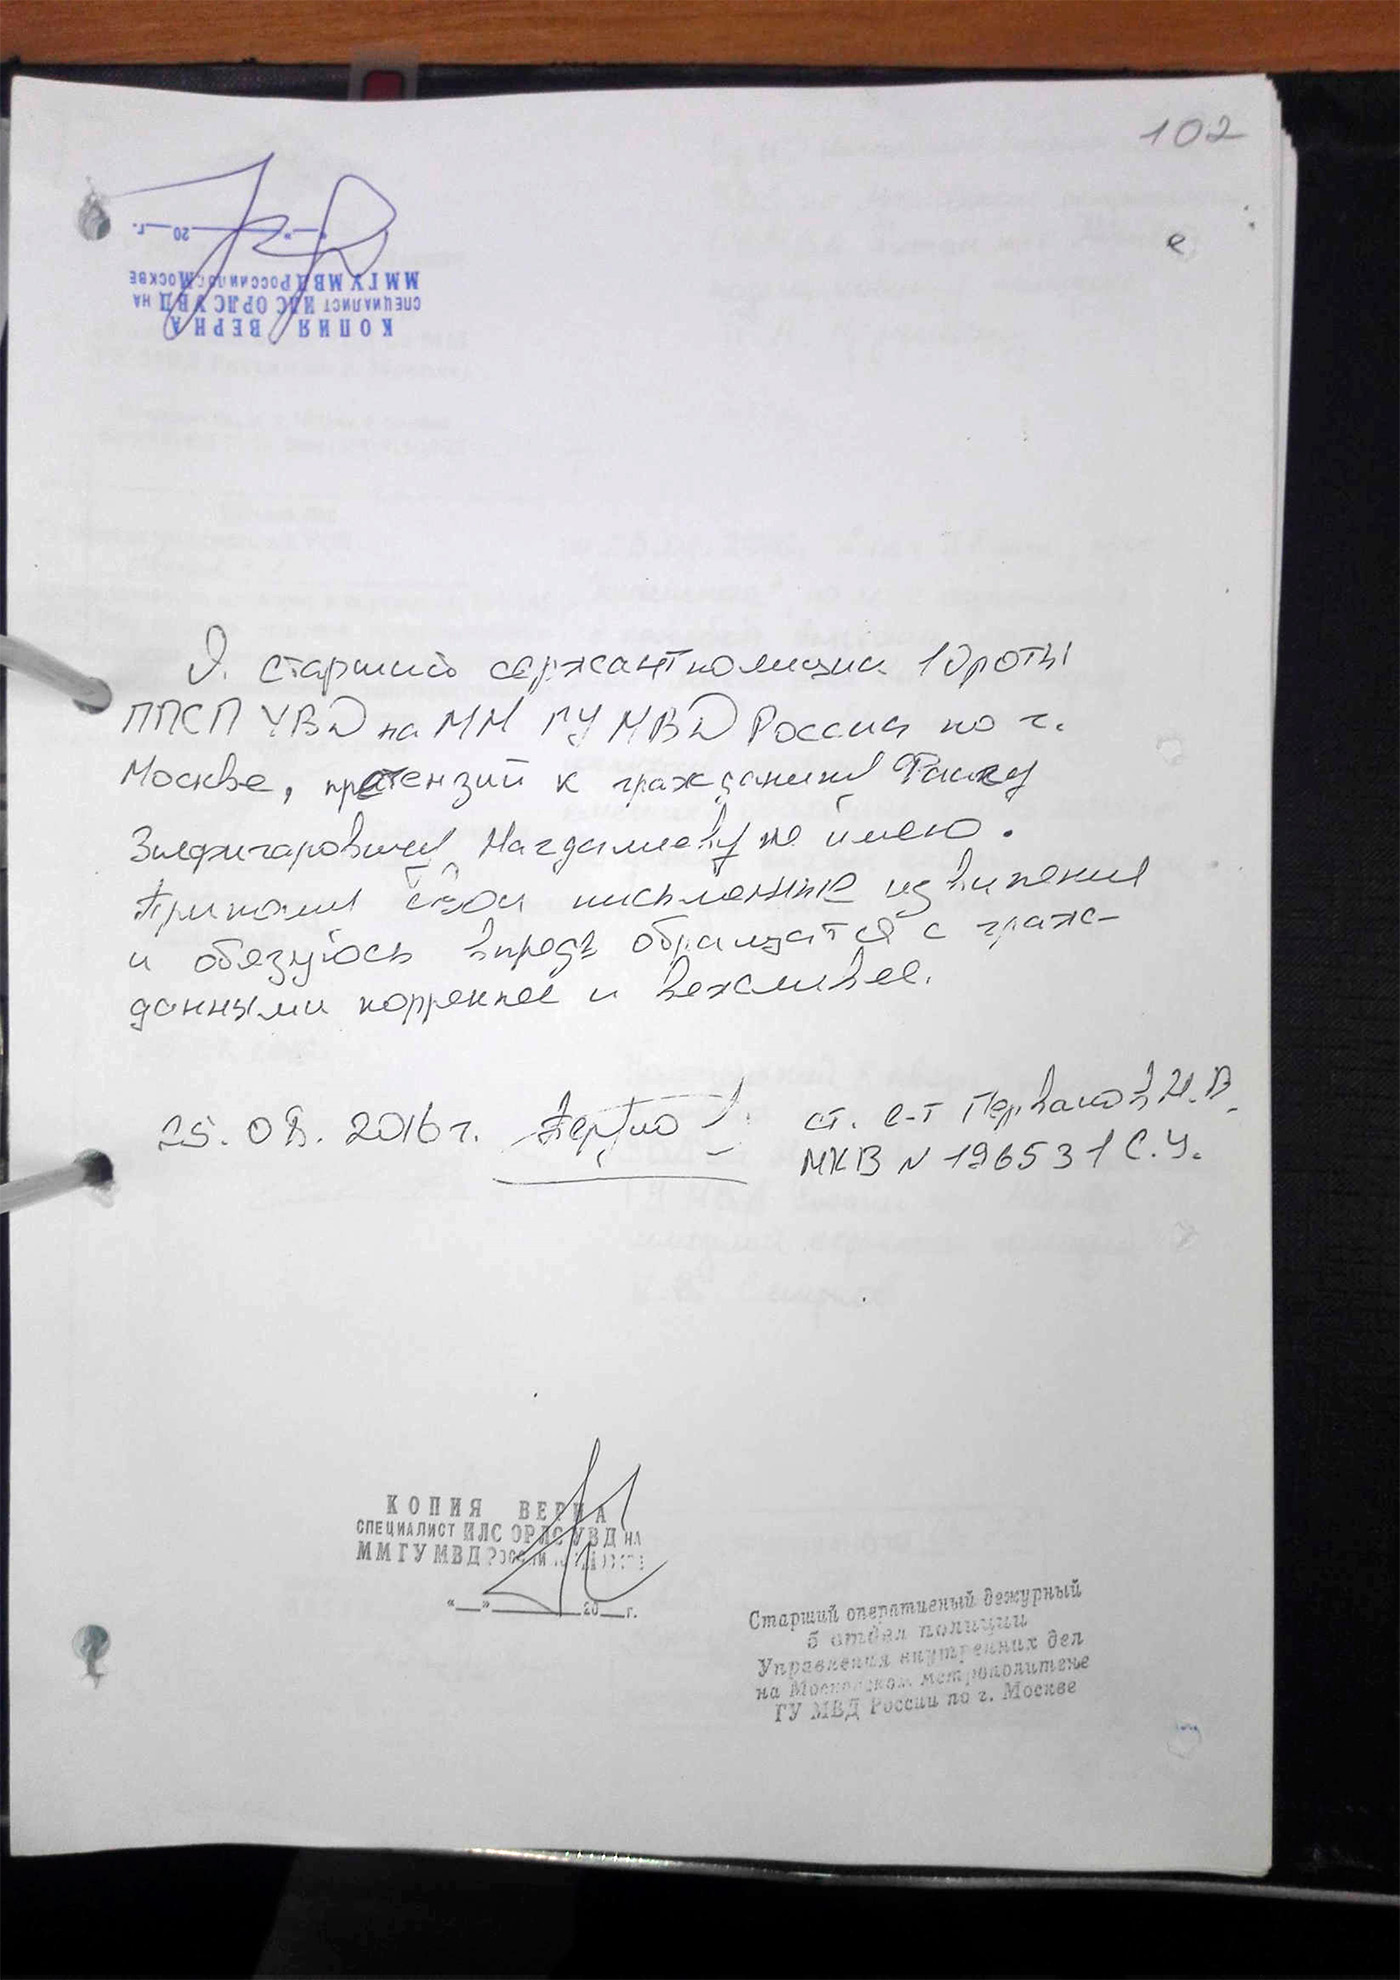 102
КОПИЯ ВЕРНА
СПЕЦИАЛИСТ ИЛС ОРЛС УВД НА
ММ ГУ МВД РОССИИ ПО Г. МОСКВЕ
"__"________20__г.
Я. старший сержант полиции 10 роты
ППСП УВД на ММ ГУ МВД России по г.
Москве, претензий к гражданину
Магдалиеву не имею.
Приношу свои письменные извинения
и обязуюсь впредь обращатся с граж-
данными коррекнее и вежливее.
25.08.2016 г. ст. с-т Перваков И.В.
МКВ N 196531 С.У.
КОПИЯ ВЕРНА
СПЕЦИАЛИСТ ИЛС ОРЛС УВД НА
ММ ГУ МВД России
"__"________20__г.
Старший оперативный дежурный
5 отдел полиции
Управления внутренних дел
на Московском метрополитене
ГУ МВД России по г. Москве